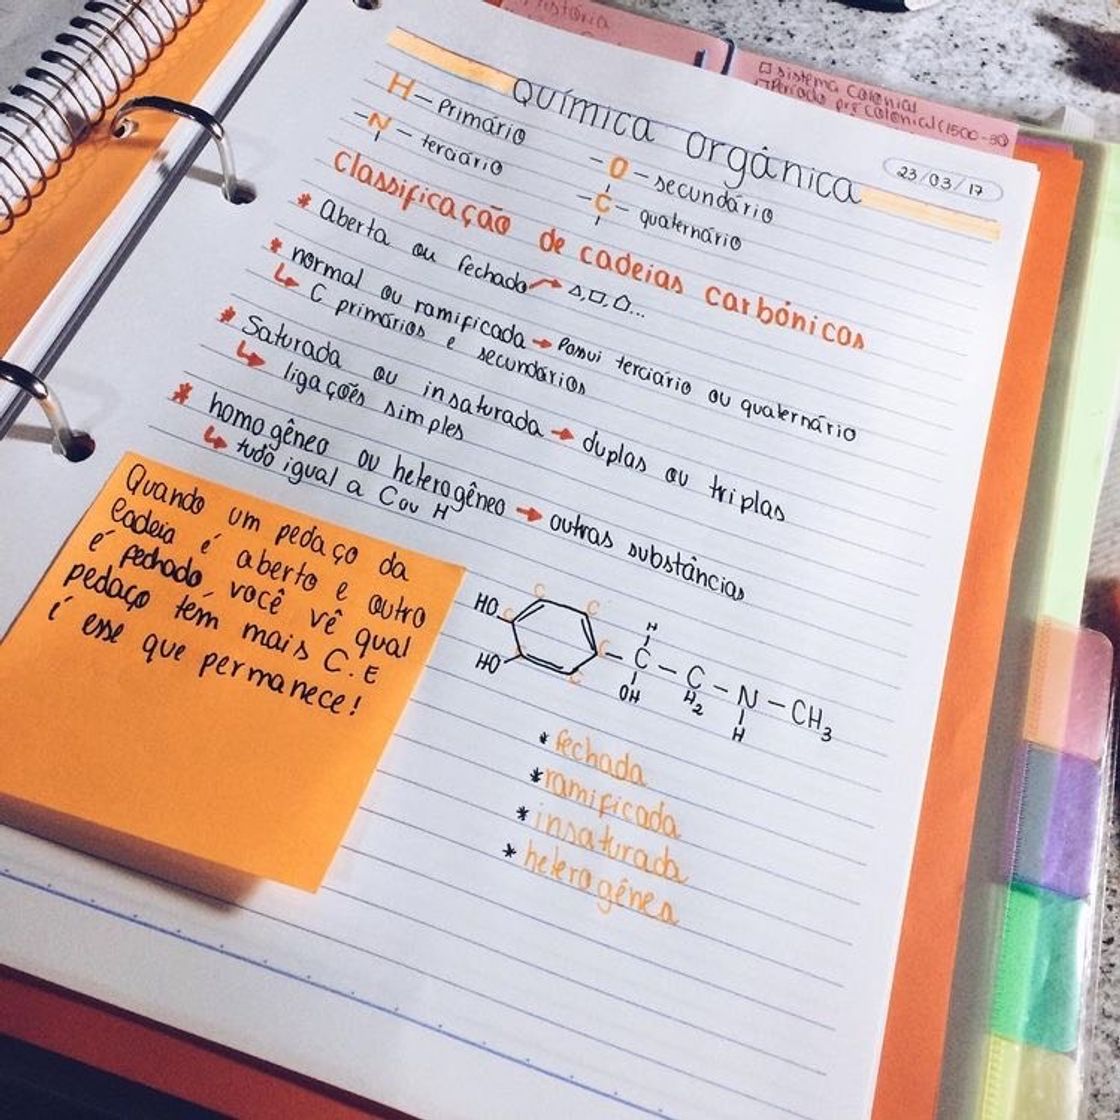 História
□ sistema colonial
□ Período pré colonial (1500-30)
Química orgânica
23/03/17
H – Primário
– O – secundário
– N – terciário
– C – quaternário
classificação de cadeias carbônicas
* Aberta ou fechada → △, □, ⬠...
* normal ou ramificada → Possui terciário ou quaternário
↳ C primários e secundários
* Saturada ou insaturada → duplas ou triplas
↳ ligações simples
* homogêneo ou heterogêneo → outras substâncias
↳ tudo igual a C ou H
Quando um pedaço da
cadeia é aberto e outro
é fechado você vê qual
pedaço tem mais C. E
é esse que permanece!
HO
HO
C C C C C
H
C – C – N – CH3
OH H2 H
* fechada
* ramificada
* insaturada
* heterogênea